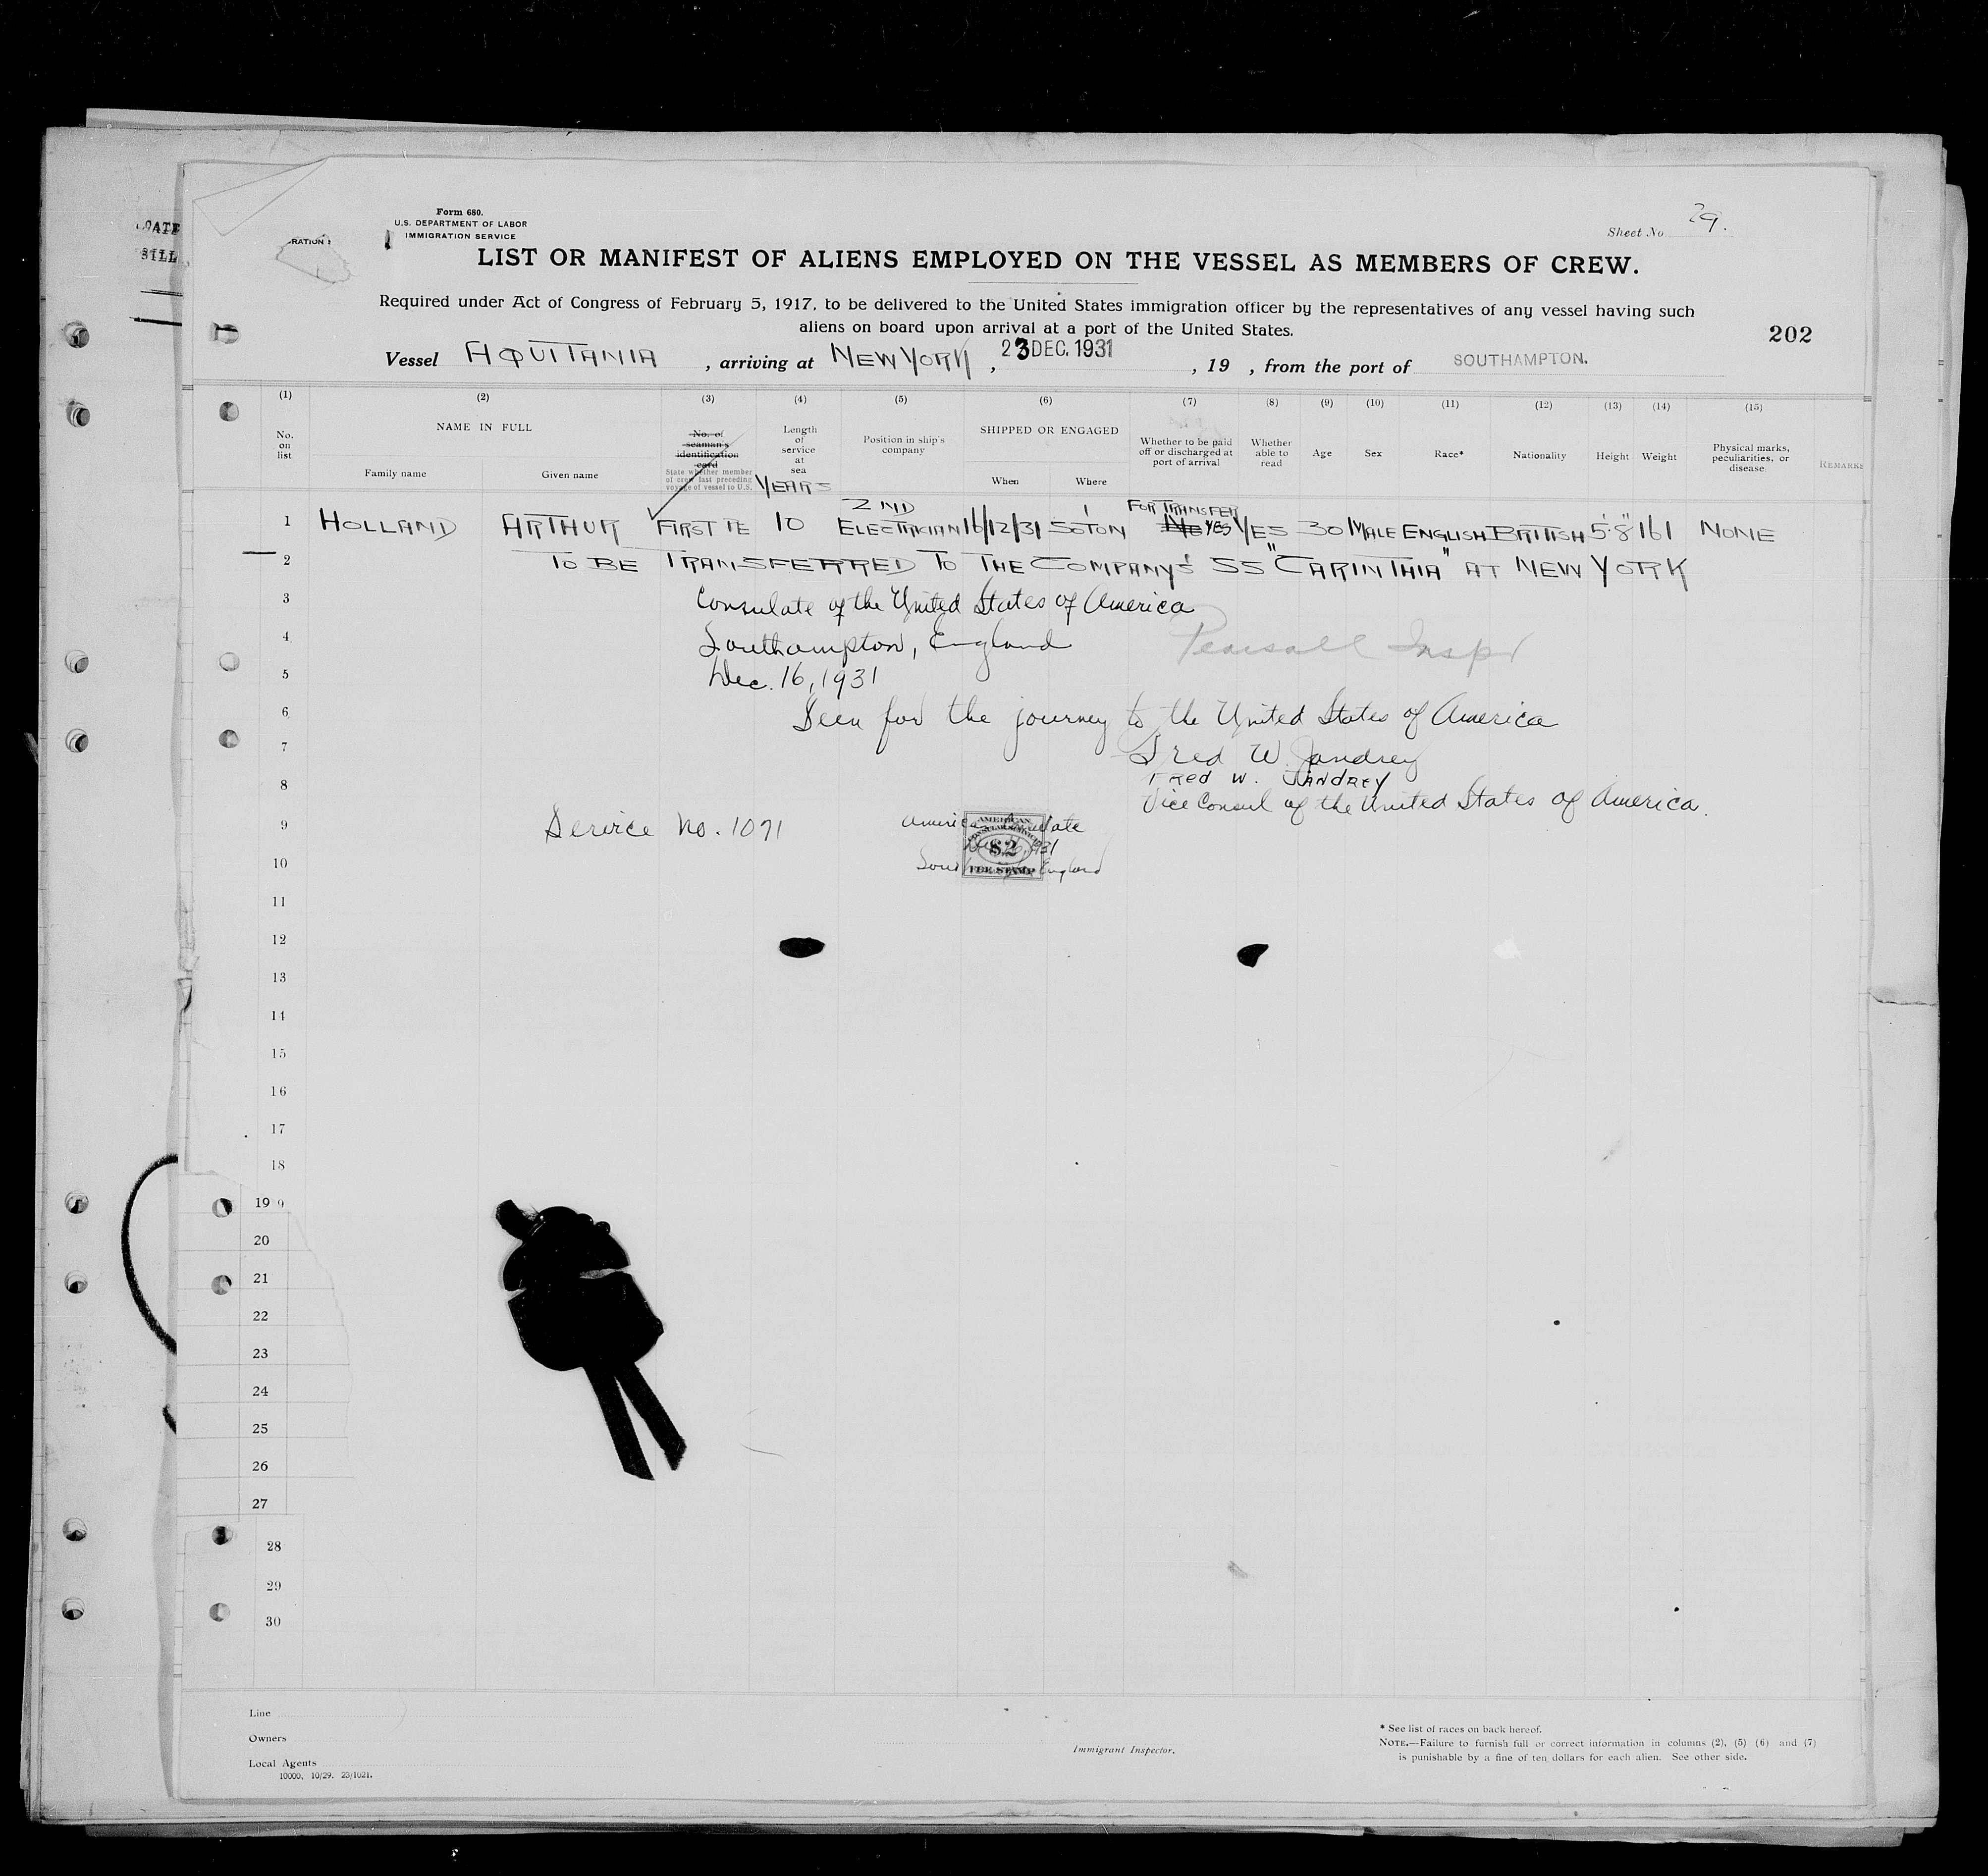 Form 680.
U.S. DEPARTMENT OF LABOR
IMMIGRATION SERVICE
RATION
Sheet No 29.
LIST OR MANIFEST OF ALIENS EMPLOYED ON THE VESSEL AS MEMBERS OF CREW.
Required under Act of Congress of February 5, 1917, to be delivered to the United States immigration officer by the representatives of any vessel having such
aliens on board upon arrival at a port of the United States.
202
Vessel AQUITANIA, arriving at NEW YORK, 23 DEC. 1931, 19 , from the port of SOUTHAMPTON.
(1) (2) (3) (4) (5) (6) (7) (8) (9) (10) (11) (12) (13) (14) (15)
No. on list
NAME IN FULL
Family name Given name
No. of seaman's identification card
State whether member of crew last preceding voyage of vessel to U.S.
Length of service at sea
YEARS
Position in ship's company
SHIPPED OR ENGAGED
When Where
Whether to be paid off or discharged at port of arrival
Whether able to read
Age
Sex
Race*
Nationality
Height
Weight
Physical marks, peculiarities, or disease
REMARKS
2ND FOR TRANSFER
1 HOLLAND ARTHUR FIRST TE 10 ELECTRICIAN 16/12/31 SOTON No YES YES 30 MALE ENGLISH BRITISH 5'8" 161 NONE
2 TO BE TRANSFERRED TO THE COMPANY'S SS "CARINTHIA" AT NEW YORK
3 Consulate of the United States of America
4 Southampton, England Pearsall Inspr
5 Dec. 16, 1931
6 Seen for the journey to the United States of America
7 Fred W. Jandrey
8 FRED W. JANDREY
Vice Consul of the United States of America.
9 Service No. 1071
AMERICAN
CONSULAR SERVICE
$2
FEE STAMP
1931
England
10
11
12
13
14
15
16
17
18
19 9
20
21
22
23
24
25
26
27
28
29
30
Line
Owners
Local Agents
10000, 10/29. 23/1021.
Immigrant Inspector.
* See list of races on back hereof.
NOTE.—Failure to furnish full or correct information in columns (2), (5) (6) and (7)
is punishable by a fine of ten dollars for each alien. See other side.